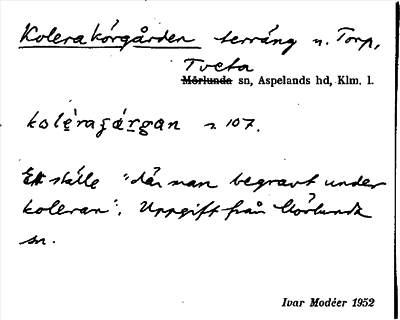 Kolerakörgården terräng n. Torp,
Tveta
Mörlunda sn, Aspelands hd, Klm. l.
s. 107.
Ett ställe "där man begravt under
koleran". Uppgift från Mörlunda
sn.
Ivar Modéer 1952